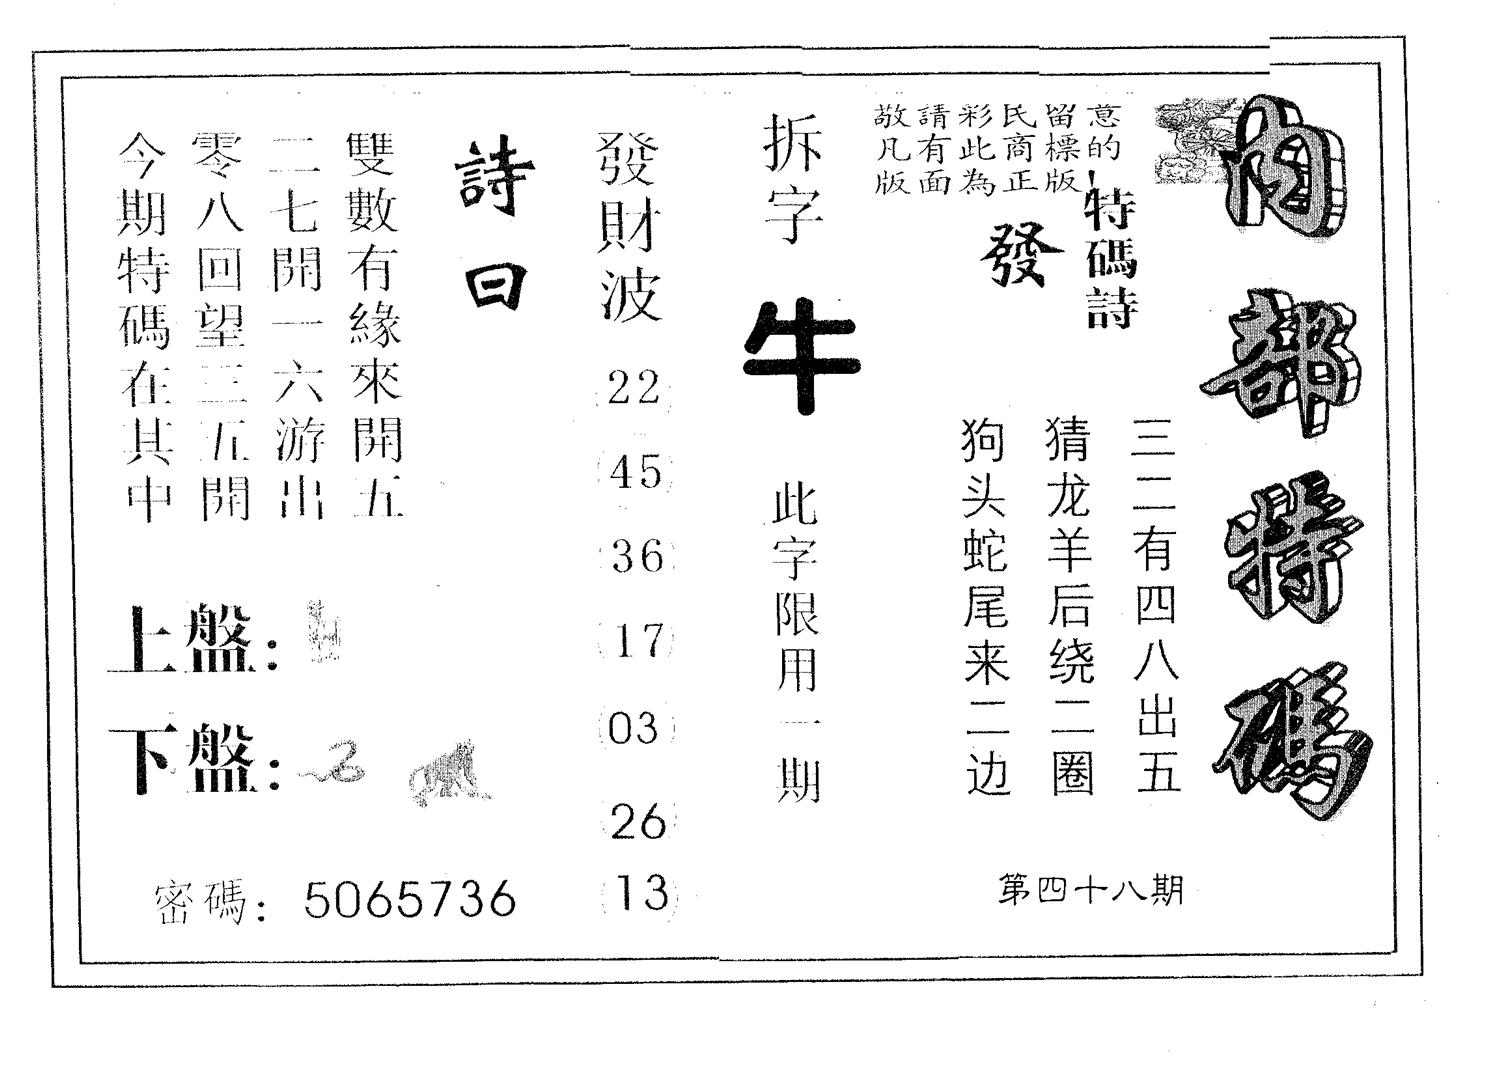 内部特碼
敬請彩民留意
凡有此商標的
版面為正版!
特碼詩
發
三二有四八出五
猜龙羊后绕二圈
狗头蛇尾来二边
第四十八期
拆字
牛
此字限用一期
發財波
22
45
36
17
03
26
13
詩曰
雙數有緣來開五
二七開一六游出
零八回望三五開
今期特碼在其中
上盤:
下盤:
密碼: 5065736